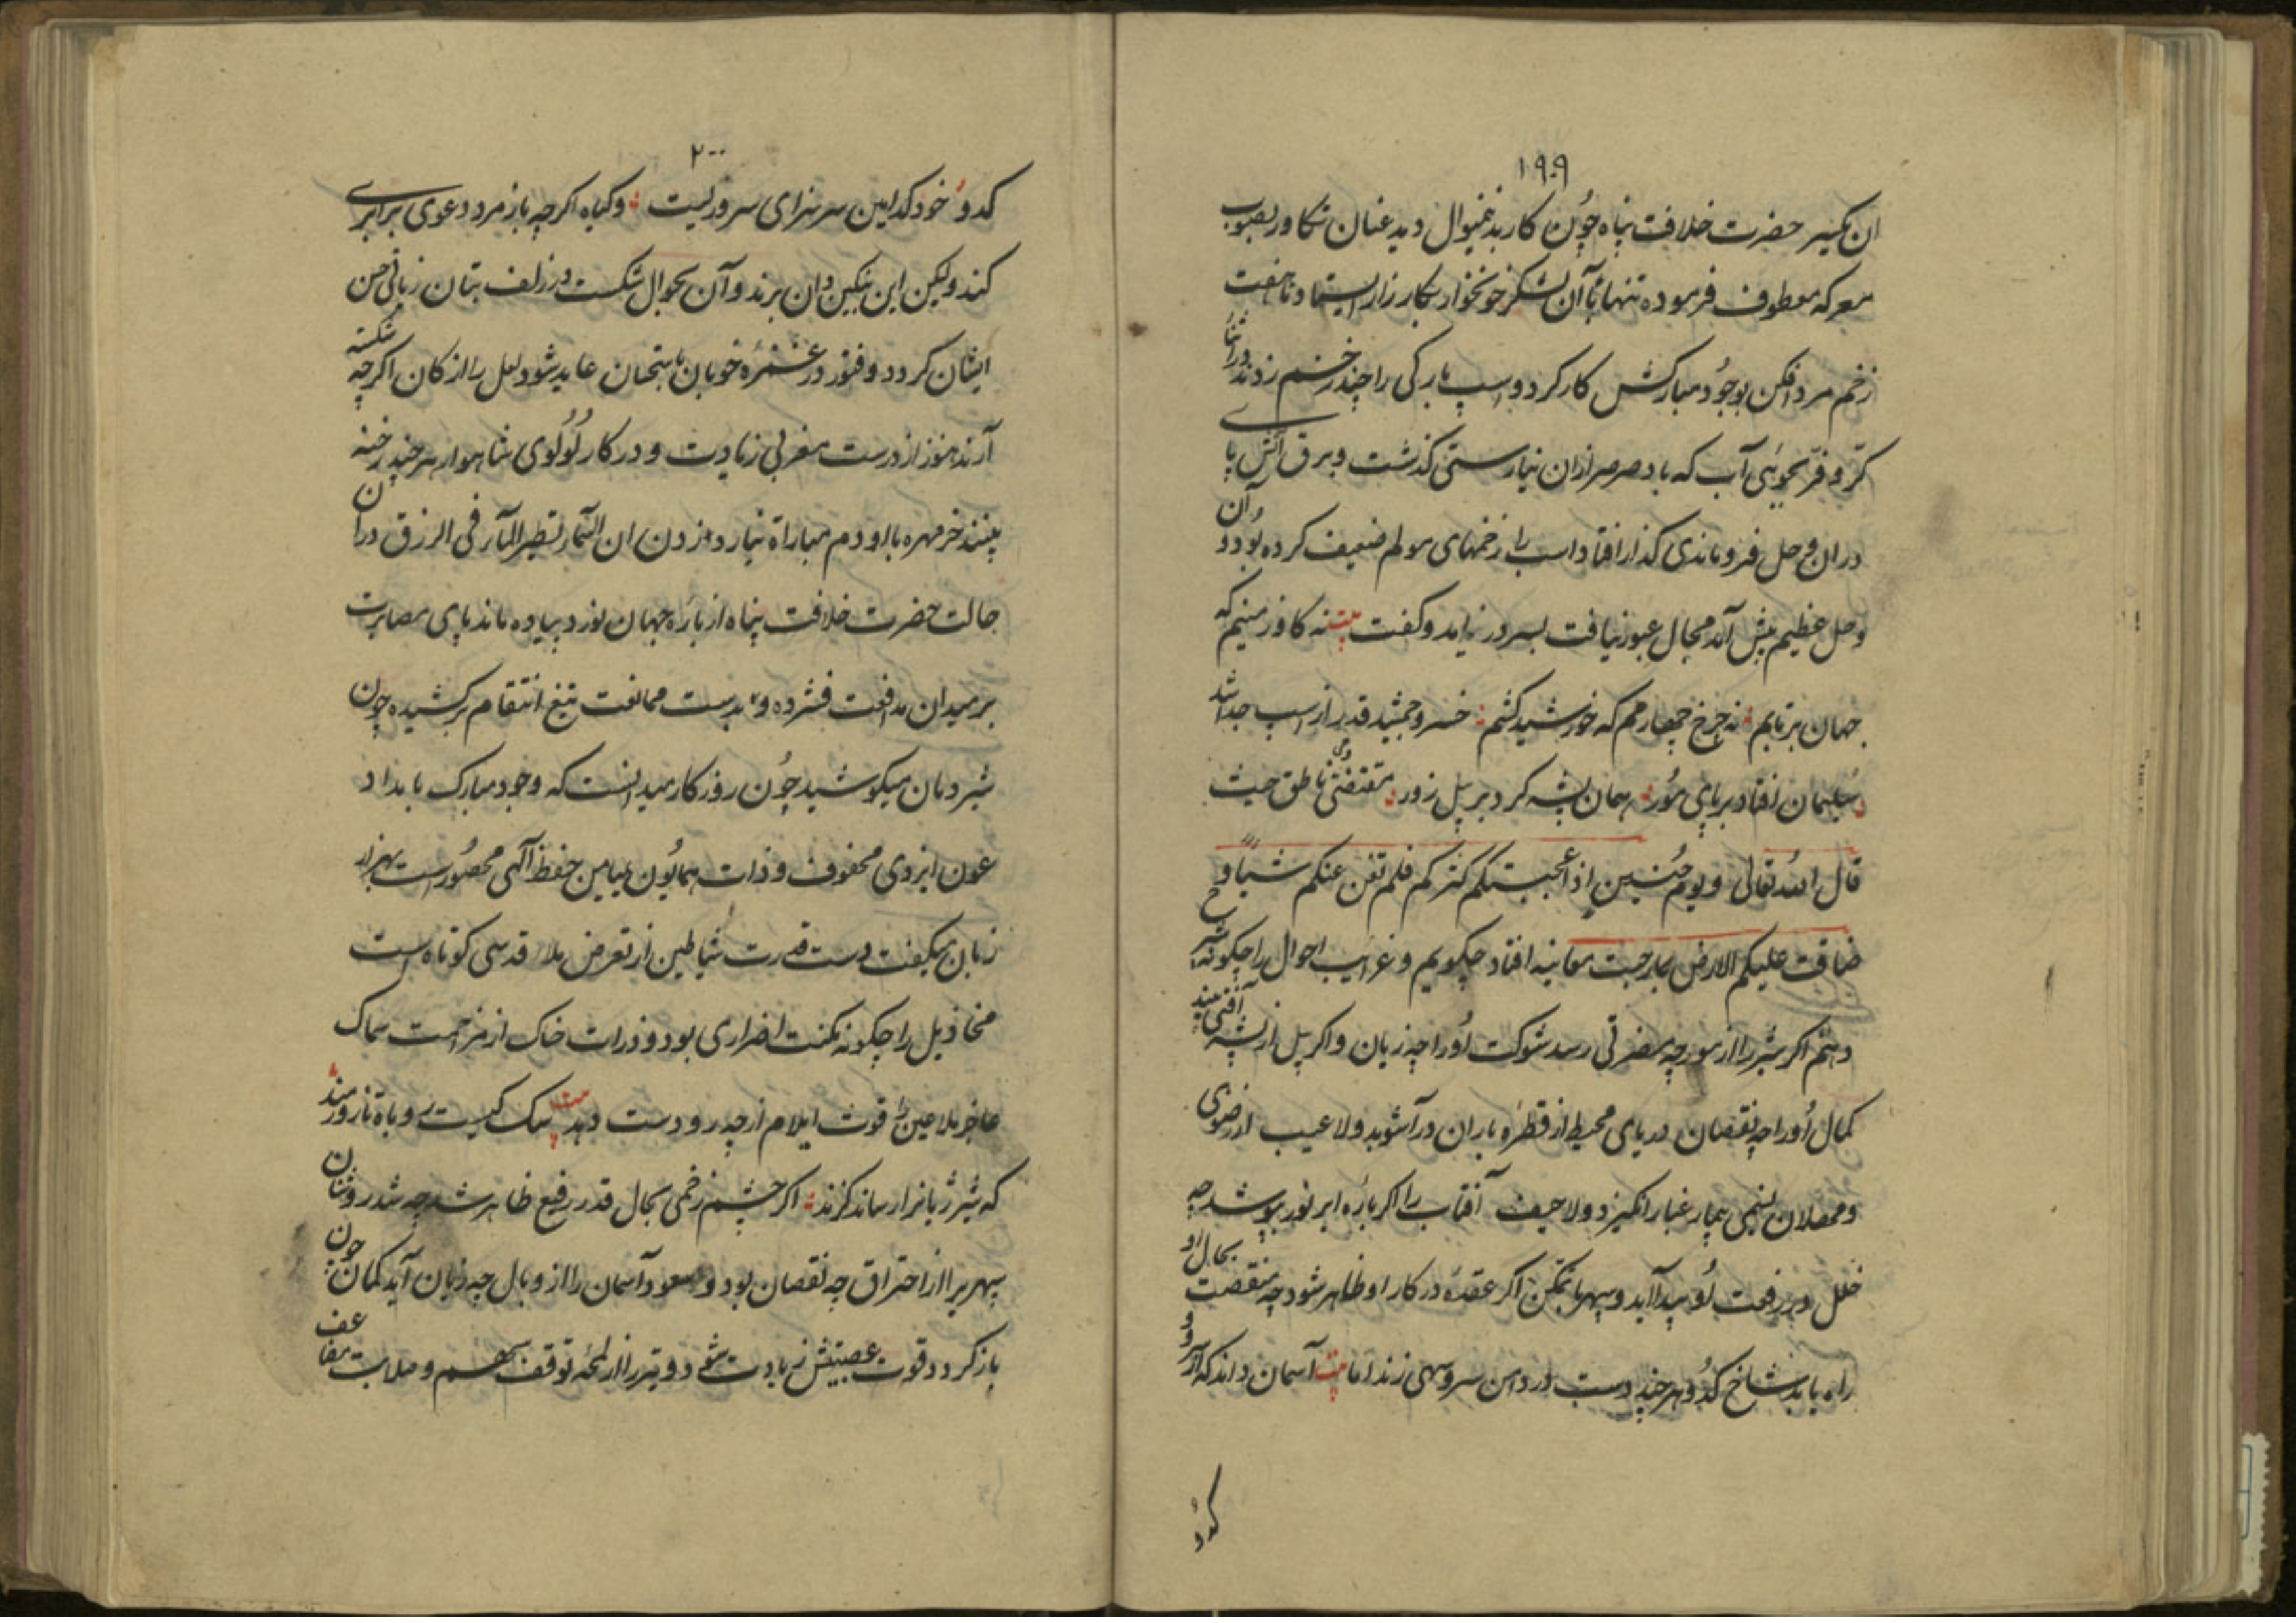 ۱۹۹
ان یکسر حضرت خلافت پناه چون کار بدینمنوال دید عنان تکاور بصوب
معرکه معطوف فرموده تنها با آن لشکر خونخوار بکارزار ایستاد تا هفت
زخم مرد افکن بوجود مبارکش کارکرد و اسپ بارکی را چند زخم زدند در اثنای
کر و فر بجوئی آب که باد صرصر ازان نیارستی گذشت و برق آتش پا
دران وحل فروماندی گذار افتاد اسب را زخمهای مولم ضعیف کرده بود و آن
وحل عظیم پیش آمد مجال عبور نیافت بسر در آمد و گفت بیت نه کاو زمینم که
جهان برتابم نه چرخ چهارمم که خورشید کشم خسرو جمشید قدر از اسپ جدا شد
سلیمان افتاد بر پای مور همان پشه کرد بر پیل زور مقتضی ناطق حیث
قال الله تعالی و یوم حنین اذ اعجبتکم کثرتکم فلم تغن عنکم شیأ و
ضاقت علیکم الارض بما رحبت معاینه افتاد چکویم و غرایب احوال را چکونه شرح
دهم اکر شیر را از مورچه مضرتی رسد شوکت اورا چه زیان و اکر پیل از پشه آفتی بیند
کمال اورا چه نقصان دریای محیط از قطره باران در آشوبد ولا عیب از رضوی
و ثهلان بنسیمی غبار انکیزد ولا حیف آفتاب را اکر پاره ابر نور بپوشد چه
خلل در رفعت او پیدا آید و سپهر با تمکن اکر عقده در کار او ظاهر شود چه منقصت بحال او
راه یابد شاخ کدو هر چند دست در دامن سرو سهی زند اما بیت آسمان داند که از سرو و
کدو
۲۰۰
کدو خود کدامین سر سزای سروریست و کیاه اکرچه با زمرد دعوی برابری
کند ولیکن این بنکین دان برند و آن بجوال شکست در زلف بتان زیاتی حسن
ایشان کردد و فتور در غمزه خوبان باستحسان عاید شود لعل را از کان اکرچه شکسته
آرند هنوز از درست مغربی زیادت و در کار لولوی شاهوار هر چند رخنه
بینند خرمهره با او دم مباراة نیارد زدن ان السماء لتطیر المآء فی الرزق دران
حالت حضرت خلافت پناه از باره جهان نورد پیاده ماند پای مصابرت
بر میدان مدافعت فشرده و بدست ممانعت تیغ انتقام برکشیده چون
شیر دمان میکوشید چون روزکار میدانست که وجود مبارک بامداد
عون ایزدی محفوف و ذات همایون بمیامن حفظ آلهی محصور است بهزار
زبان میکفت دست قدرت شیاطین از تعرض ملاء قدسی کوتاه است
مخاذیل را چکونه مکنت اضراری بود و ذرات خاک از مزاحمت سماک
عاجز ملاعین را قوت ایلام از چه رو دست دهد بیت سک کیست روباه نازورمند
که شیر ژیانرا رساند کزند اکر چشم زخمی بحال قدر رفیع ظاهر شد چه شد روشنان
سپهر را از احتراق چه نقصان بود و سعود آسمان را از وبال چه زیان آید کمان چون
باز کردد قوت عصبیتش زیادت شود و تیر را از لمحه توقف سهم و صلابت مضاعف